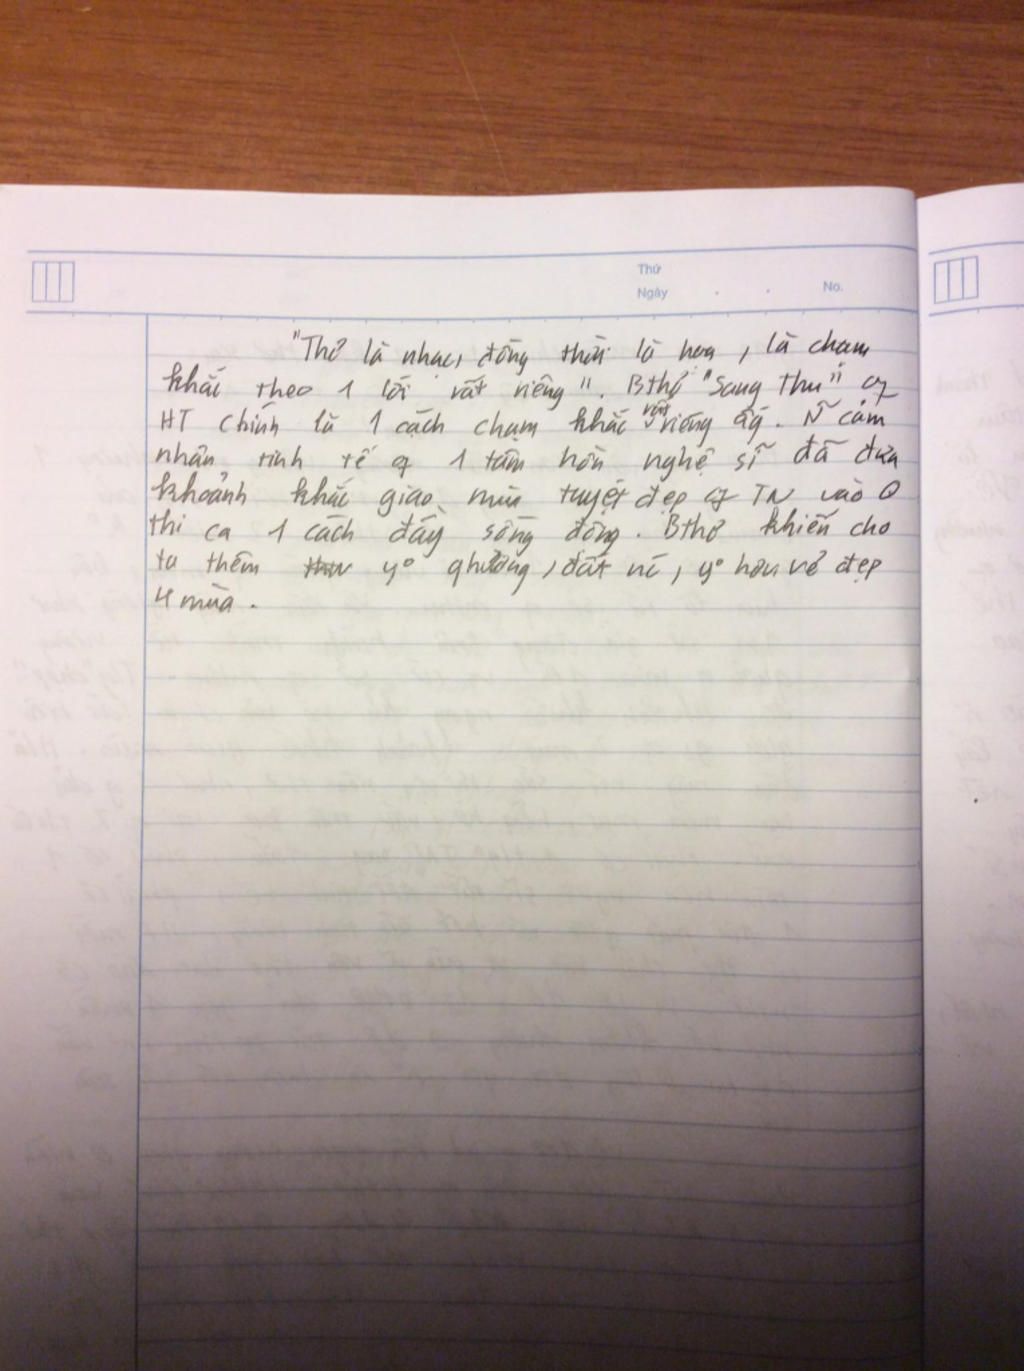 Thứ
Ngày . . No.
"Thơ là nhạc, đồng thời là họa, là chạm
khắc theo 1 lối rất riêng". Bthơ "Sang Thu" of
HT chính là 1 cách chạm khắc rất riêng ấy. N~ cảm
nhận tinh tế of 1 tâm hồn nghệ sĩ đã đưa
khoảnh khắc giao mùa tuyệt đẹp of TN vào
thi ca 1 cách đầy sống động. Bthơ khiến cho
ta thêm yo qhương, đất nc, yo hơn vẻ đẹp
4 mùa.